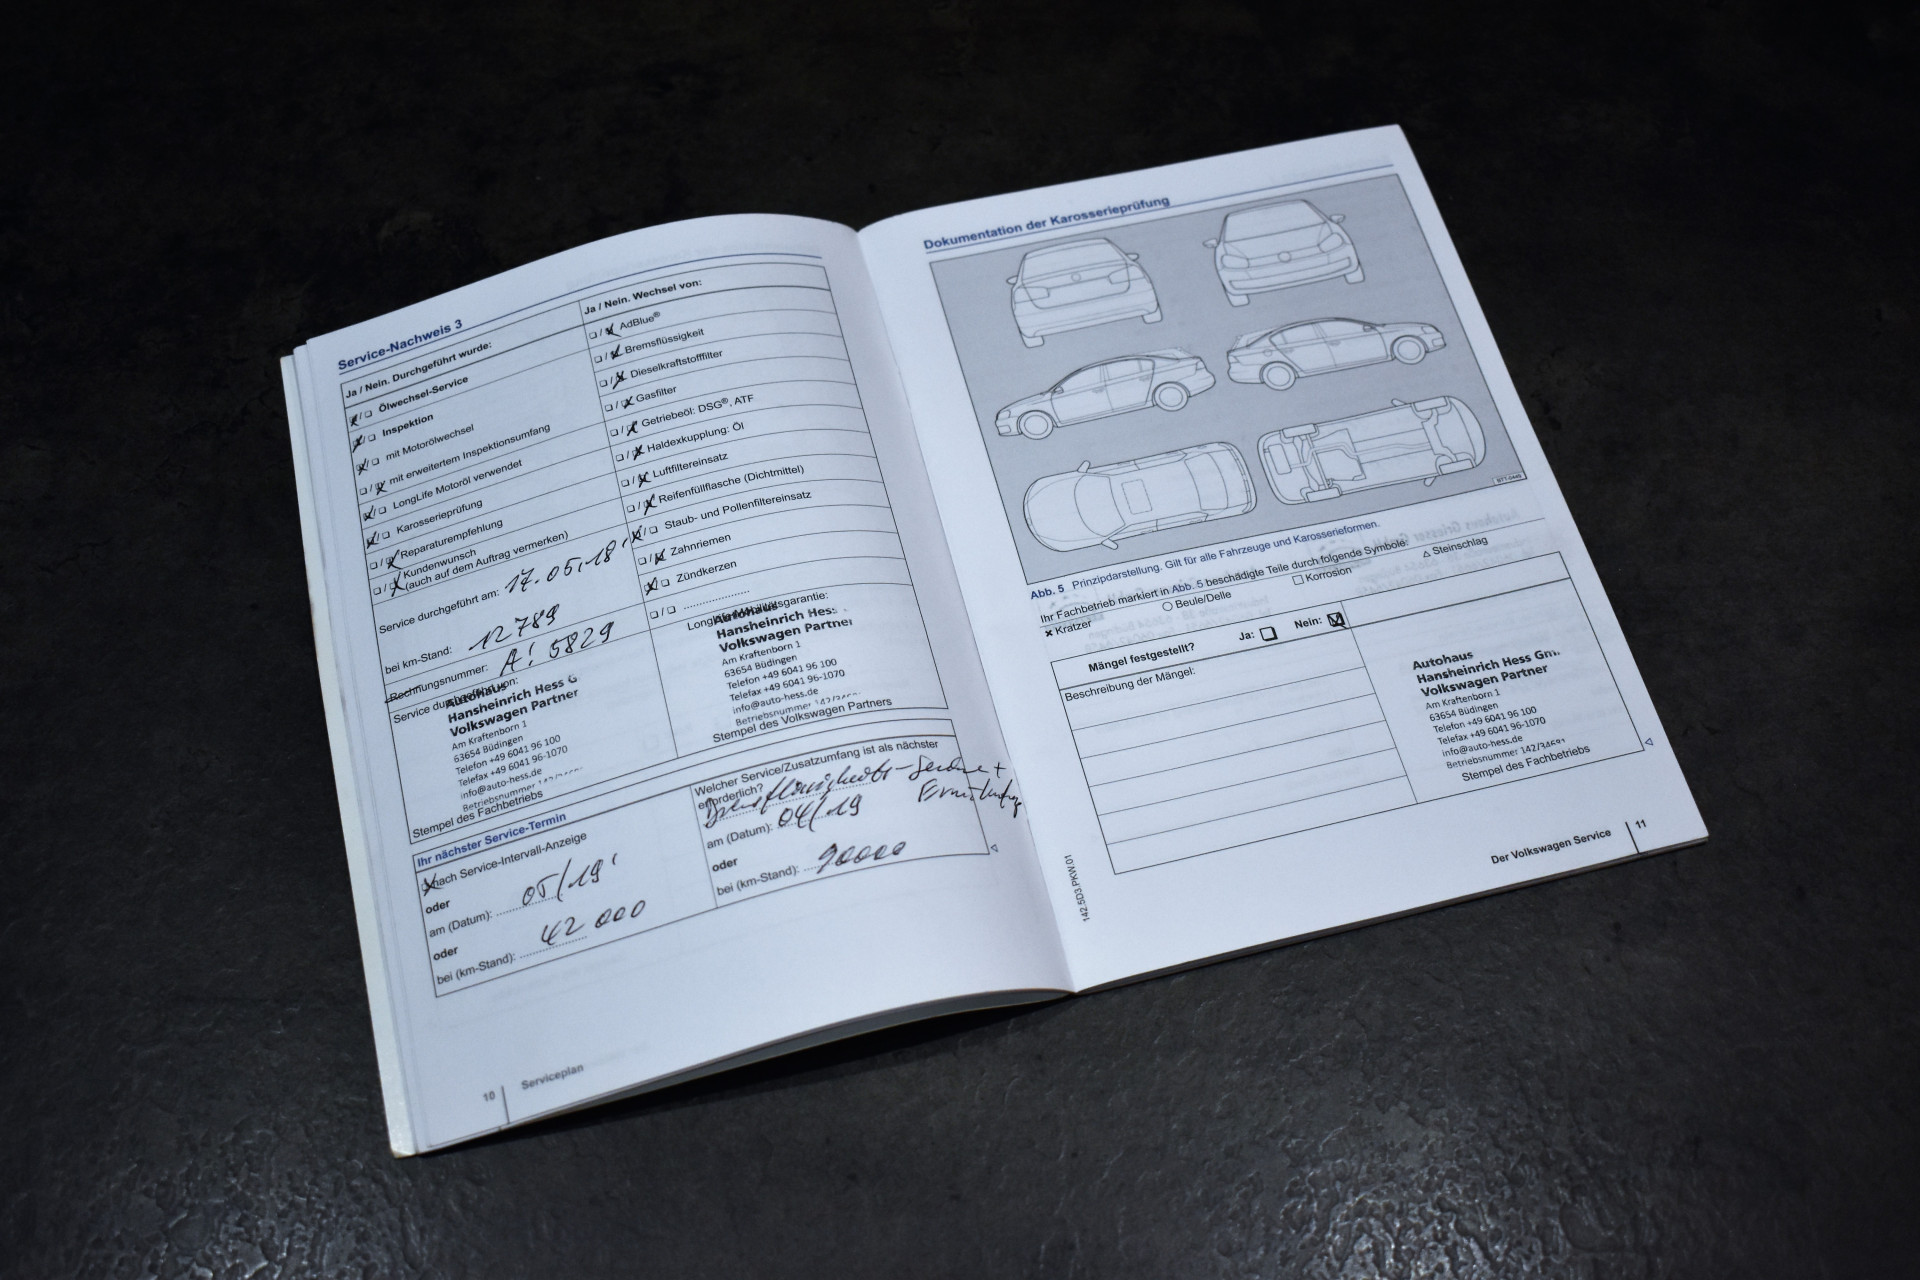 Service-Nachweis 3
Ja / Nein. Durchgeführt wurde:
Ölwechsel-Service
Inspektion
mit Motorölwechsel
mit erweitertem Inspektionsumfang
LongLife Motoröl verwendet
Karosserieprüfung
Reparaturempfehlung
Kundenwunsch
(auch auf dem Auftrag vermerken)
Service durchgeführt am: 17.05.18
bei km-Stand: 12789
Rechnungsnummer: A! 5829
Service durchgeführt von:
Autohaus
Hansheinrich Hess G
Volkswagen Partner
Am Kraftenborn 1
63654 Büdingen
Telefon +49 6041 96 100
Telefax +49 6041 96-1070
info@auto-hess.de
Betriebsnummer
Stempel des Fachbetriebs
Ja / Nein. Wechsel von:
AdBlue®
Bremsflüssigkeit
Dieselkraftstofffilter
Gasfilter
Getriebeöl: DSG®, ATF
Haldexkupplung: Öl
Luftfiltereinsatz
Reifenfüllflasche (Dichtmittel)
Staub- und Pollenfiltereinsatz
Zahnriemen
Zündkerzen
Autohaus
Hansheinrich Hess
Volkswagen Partner
Am Kraftenborn 1
63654 Büdingen
Telefon +49 6041 96 100
Telefax +49 6041 96-1070
info@auto-hess.de
Betriebsnummer
Stempel des Volkswagen Partners
Ihr nächster Service-Termin
nach Service-Intervall-Anzeige
oder
am (Datum): 05/19
oder
bei (km-Stand): 42 000
Welcher Service/Zusatzumfang ist als nächster
erforderlich?
am (Datum): 04/19
oder
bei (km-Stand): 90000
10 Serviceplan
Dokumentation der Karosserieprüfung
Abb. 5 Prinzipdarstellung. Gilt für alle Fahrzeuge und Karosserieformen.
Ihr Fachbetrieb markiert in Abb. 5 beschädigte Teile durch folgende Symbole:
Kratzer Beule/Delle Korrosion Steinschlag
Mängel festgestellt? Ja: Nein:
Beschreibung der Mängel:
Autohaus
Hansheinrich Hess Gm
Volkswagen Partner
Am Kraftenborn 1
63654 Büdingen
Telefon +49 6041 96 100
Telefax +49 6041 96-1070
info@auto-hess.de
Betriebsnummer
Stempel des Fachbetriebs
142.5D3.PKW.01
Der Volkswagen Service 11